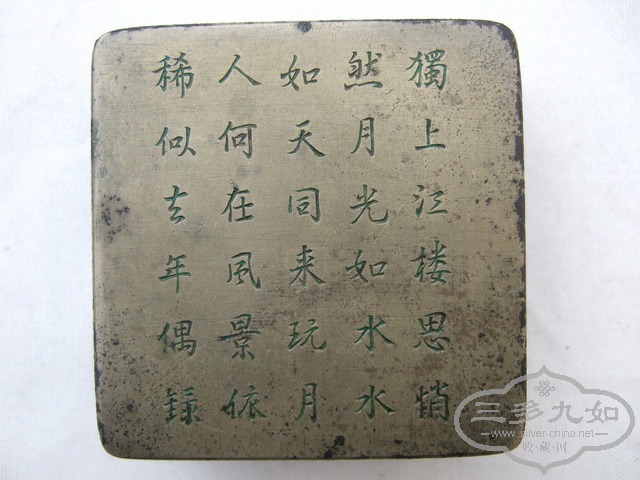 獨上江楼思悄
然月光如水水
如天同来玩月
人何在風景依
稀似去年偶録
三多九如
www.silver-china.net
收·藏·网